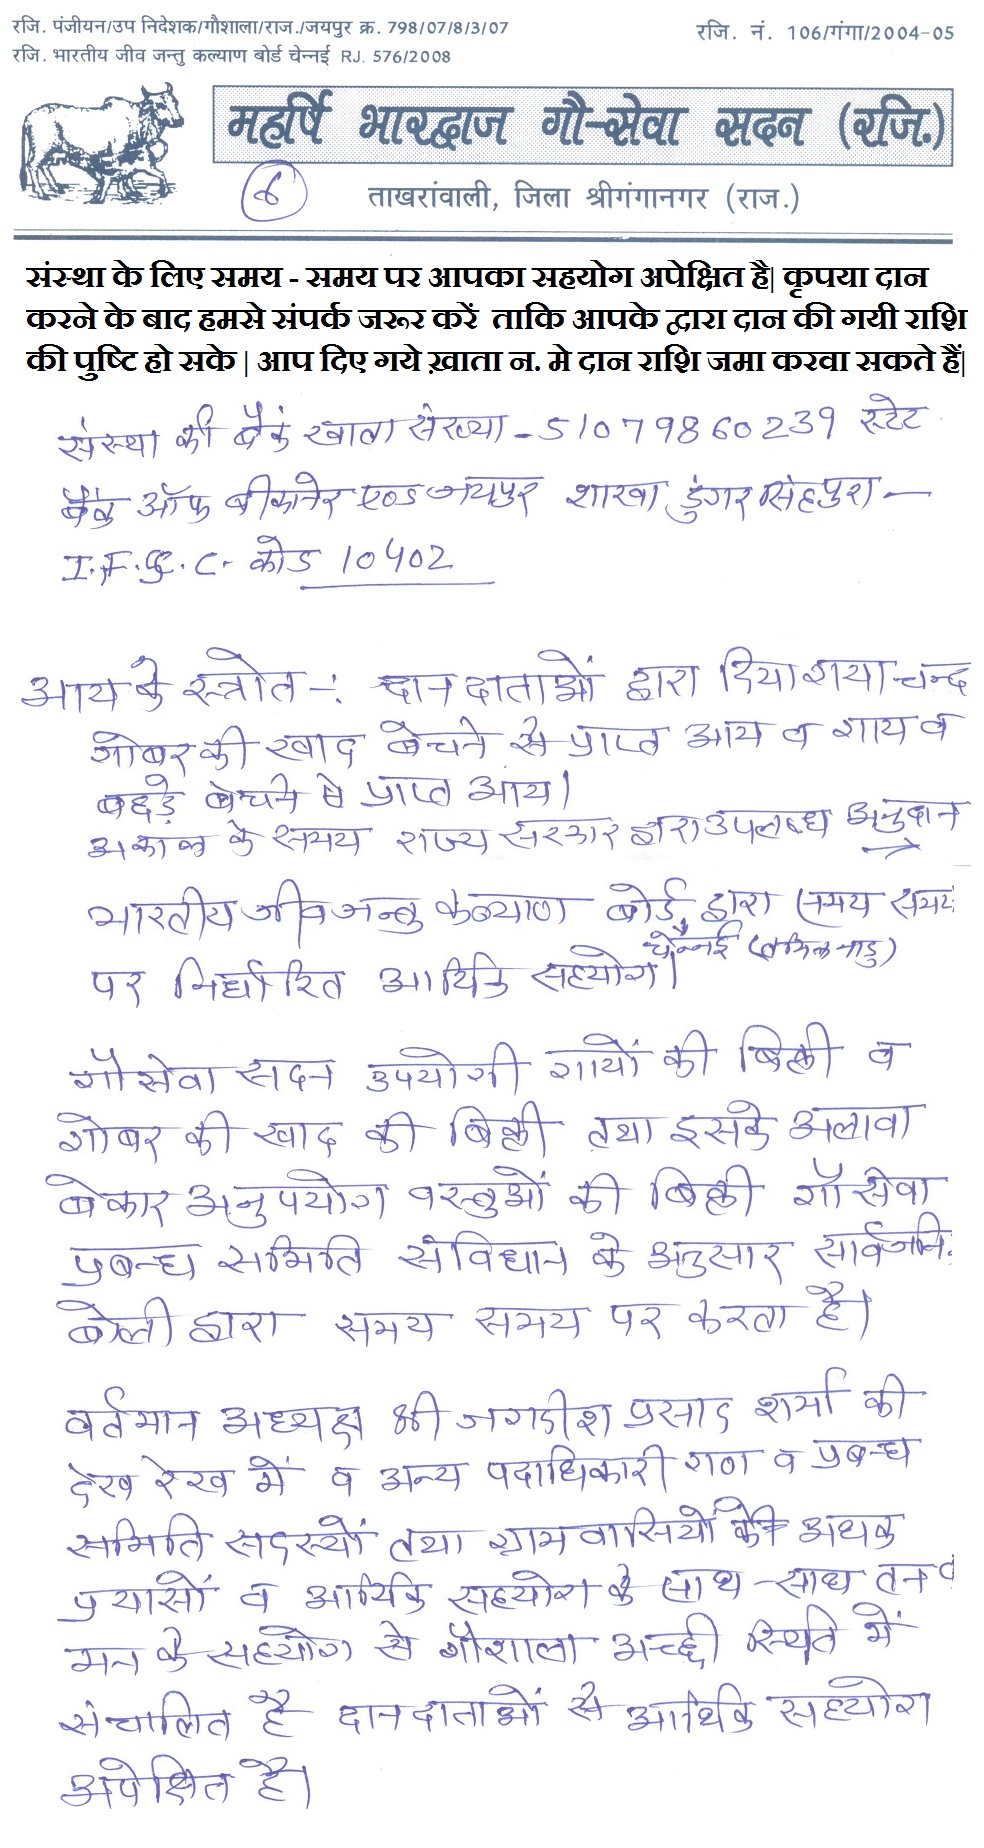 रजि. पंजीयन/उप निदेशक/गौशाला/राज./जयपुर क्र. 798/07/8/3/07
रजि. नं. 106/गंगा/2004-05
रजि. भारतीय जीव जन्तु कल्याण बोर्ड चेन्नई RJ. 576/2008
महर्षि भारद्वाज गौ-सेवा सदन (रजि.)
6
ताखरांवाली, जिला श्रीगंगानगर (राज.)
संस्था के लिए समय - समय पर आपका सहयोग अपेक्षित है| कृपया दान
करने के बाद हमसे संपर्क जरूर करें ताकि आपके द्वारा दान की गयी राशि
की पुष्टि हो सके | आप दिए गये ख़ाता न. मे दान राशि जमा करवा सकते हैं|
संस्था की बैकं खाता संख्या - 51079860239 स्टेट
बैंक ऑफ बीकानेर एण्ड जयपुर शाखा डुंगर सिंहपुरा —
I.F.S.C. कोड 10402
आय के स्त्रोत -: दान दाताओं द्वारा दिया गया चन्द
गोबर की खाद बेचने से प्राप्त आय व गाय व
बछड़े बेचने से प्राप्त आय।
अकाल के समय राज्य सरकार द्वारा उपलब्ध अनुदान
भारतीय जीव जन्तु कल्याण बोर्ड द्वारा समय समय
चेन्नई (तमिलनाडु)
पर निर्धारित आर्थिक सहयोग।
गौ सेवा सदन उपयोगी गायों की बिक्री व
गोबर की खाद की बिक्री तथा इसके अलावा
बेकार अनुपयोग वस्तुओं की बिक्री गौ सेवा
प्रबन्ध समिति संविधान के अनुसार सार्वजनि
बोली द्वारा समय समय पर करता है।
वर्तमान अध्यक्ष श्री जगदीश प्रसाद शर्मा की
देख रेख में व अन्य पदाधिकारी गण व प्रबन्ध
समिति सदस्यों तथा ग्रामवासियों के अथक
प्रयासों व आर्थिक सहयोग के साथ-साथ तन व
मन के सहयोग से गौशाला अच्छी स्थिति में
संचालित है दान दाताओं से आर्थिक सहयोग
अपेक्षित है।